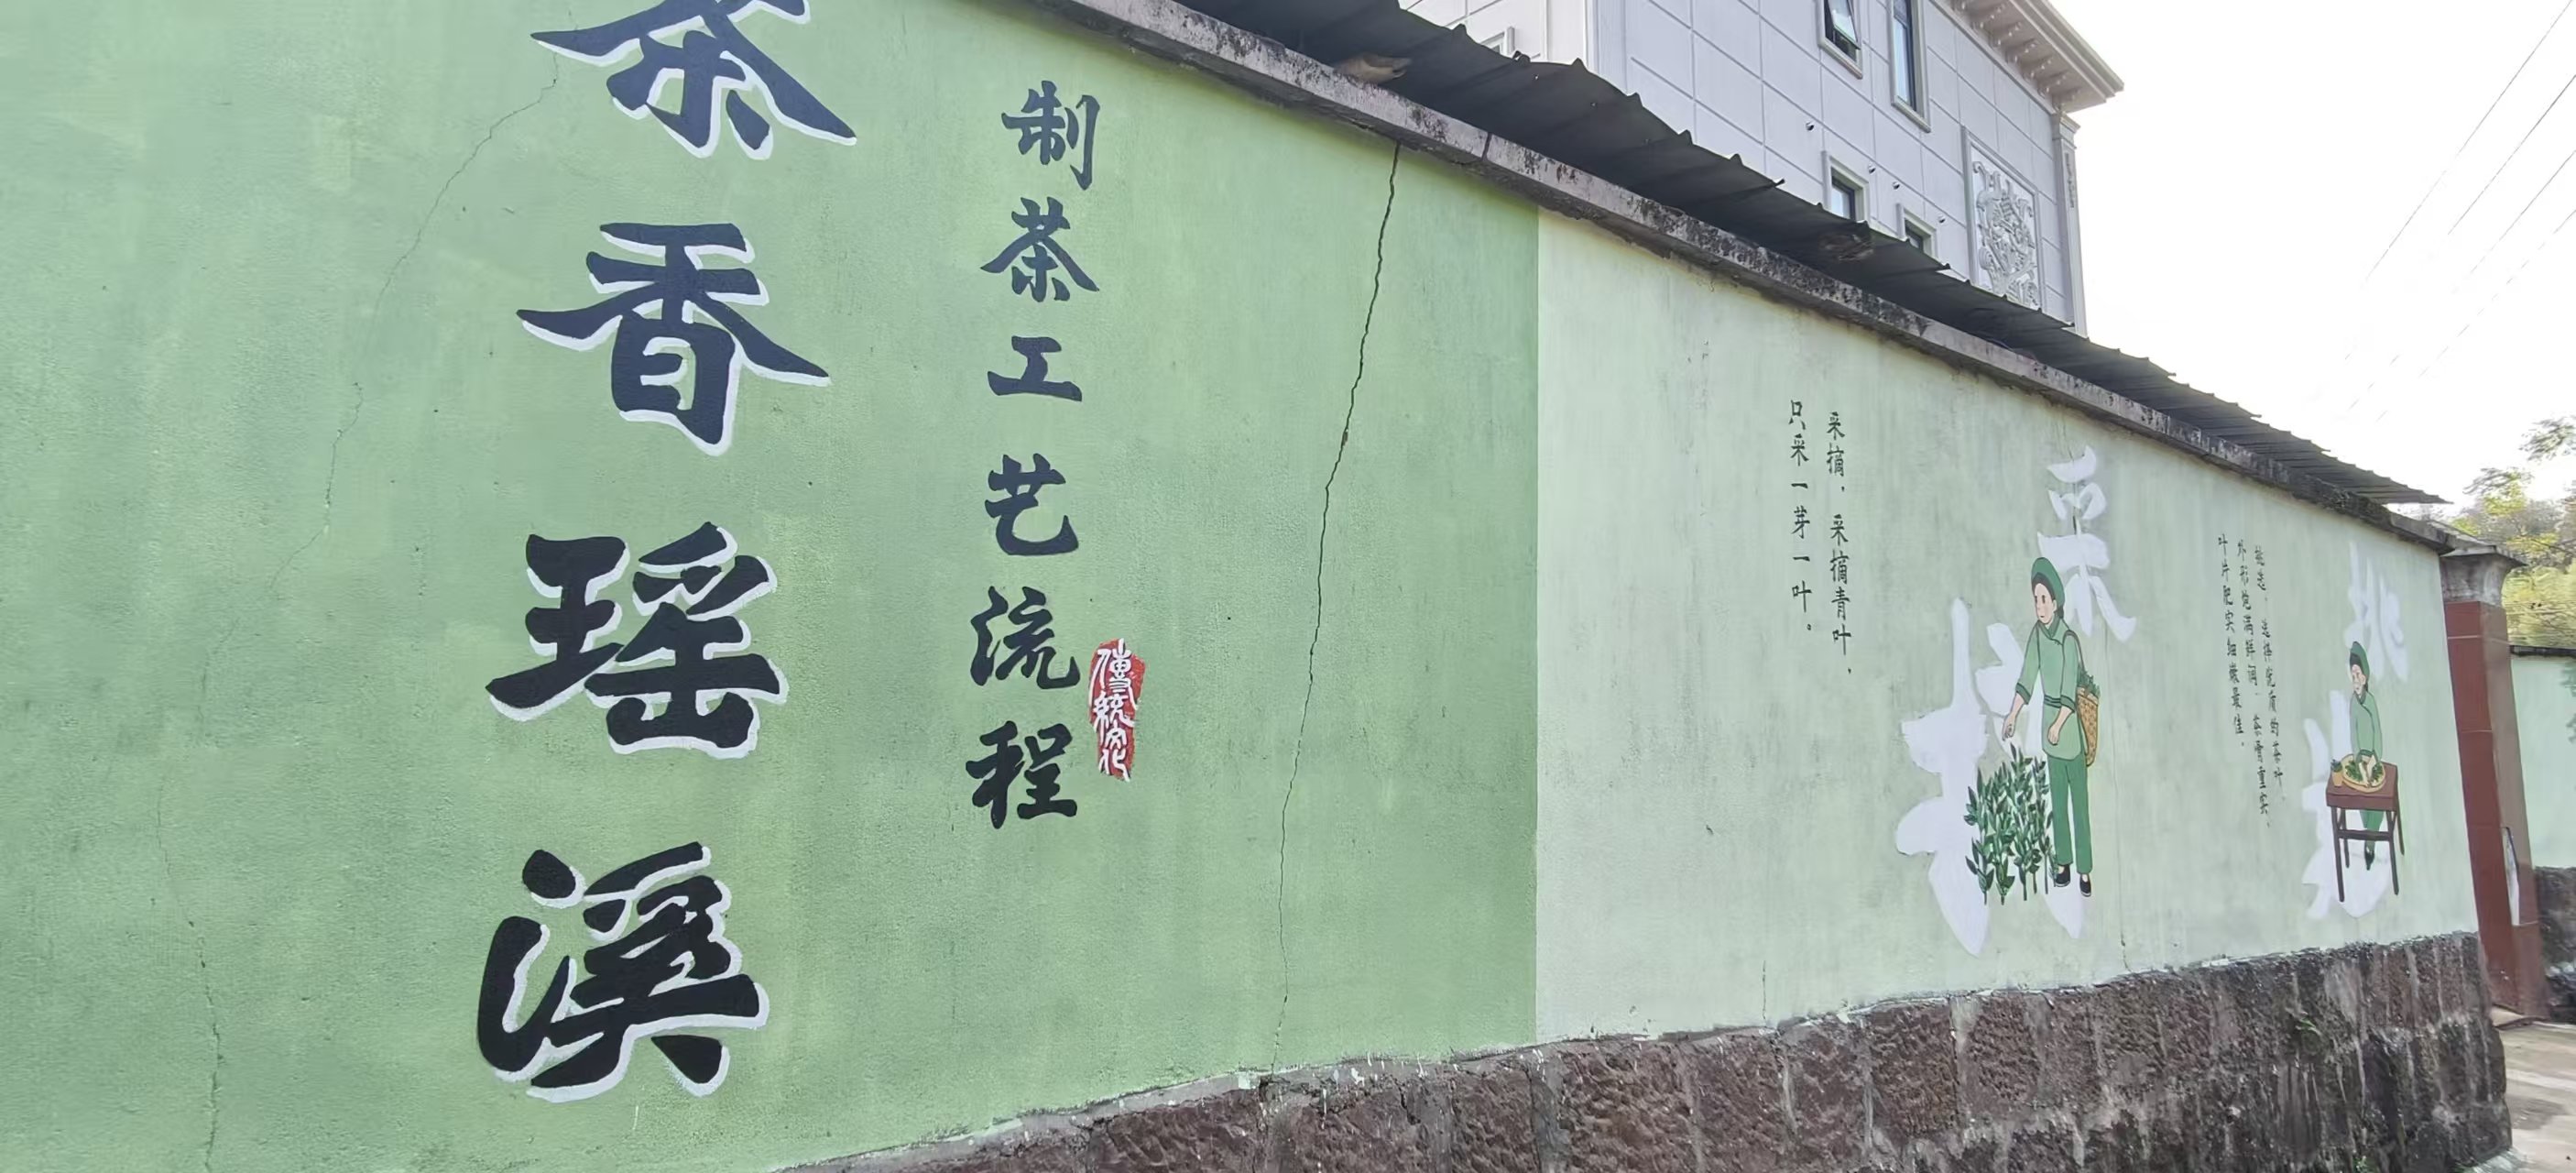 茶香瑶溪
制茶工艺流程
傳統文化
采摘，采摘青叶，
只采一芽一叶。
采摘
挑选，选择优质的茶叶，
外形饱满鲜润，茶骨重实，
叶片肥实细嫩最佳。
挑